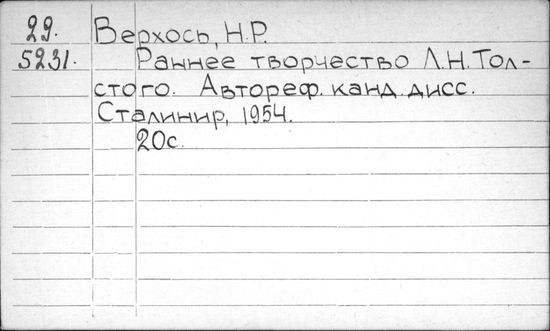 29. Верхось, Н.Р.
5231. Раннее творчество Л.Н.Тол-
стого. Автореф. канд. дисс.
Сталинир, 1954.
20с.